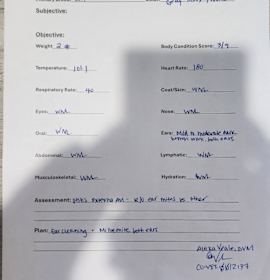 Subjective:
Objective:
Weight 2 # Body Condition Score: 3/9
Temperature: 101.1 Heart Rate: 180
Respiratory Rate: 40 Coat/Skin: WNL
Eyes: WNL Nose: WNL
Oral: WNL Ears: Mild to moderate dark
brown debris both ears
Abdominal: WNL Lymphatic: WNL
Musculoskeletal: WNL Hydration: WNL
Assessment: Otitis Externa AU - R/O ear mites vs other
Plan: Ear cleaning + Milbemite both ears
DVM